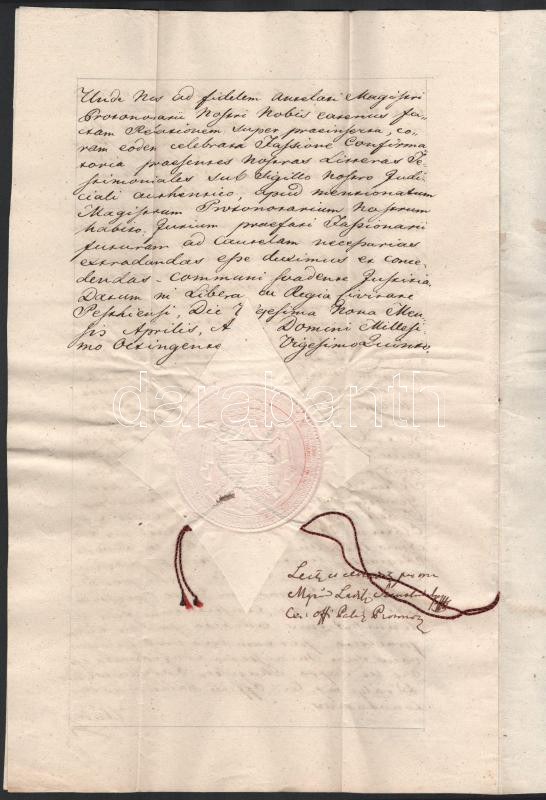 Unde Nos ad fidelem aurelati Magistri
Protonotarii Nostri Nobis eatenus fa-
ctam Relationem super praeinserta, co-
ram eodem celebrata Fassione Confirma
toria praesentes Nostras Litteras Te-
stimoniales sub Sigillo Nostro Judi-
ciali authentico, apud mentionatum
Magistrum Protonotarium Nostrum
habito Jurium praefati Fassionarii
futuram ad cautelam necessarias
extradandas esse duximus et conce-
dendas. communi svadente Justitia.
Datum in Libera ac Regia Civitate
Pesthiensi, Die esima Nona Men-
sis Aprilis, A Domini Millesi
mo Octingente Vigesimo Quinto.
darabanth
.com
per me